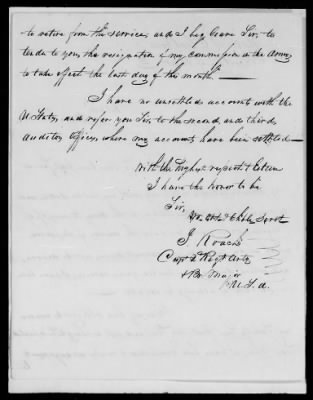 to retire from the service, and I beg leave Sir, to
tender to you, the resignation of my commission in the Army,
to take effect the last day of this month.—
I have no unsettled accounts with the
U States, and refer you Sir, to the second, and third,
auditors offices, where my accounts have been settled—
With the highest respect & Esteem
I have the honor to be
Sir,
Yr. Obt. & Obdt Servt
I Roach
Capt 2 Regt Arty
& Br. Major
U.S.A.